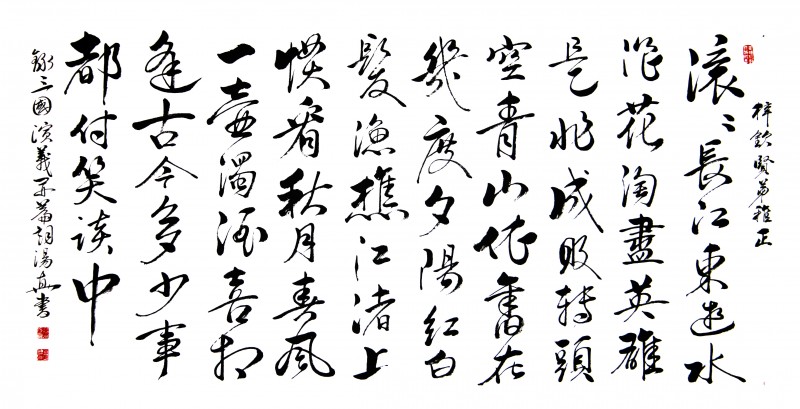 梓欽賢弟雅正
滚〻長江東逝水
浪花淘盡英雄
是非成敗轉頭
空青山依舊在
幾度夕陽紅白
髮漁樵江渚上
慣看秋月春風
一壺濁酒喜相
逢古今多少事
都付笑談中
錄三國演義開篇詞湯真書